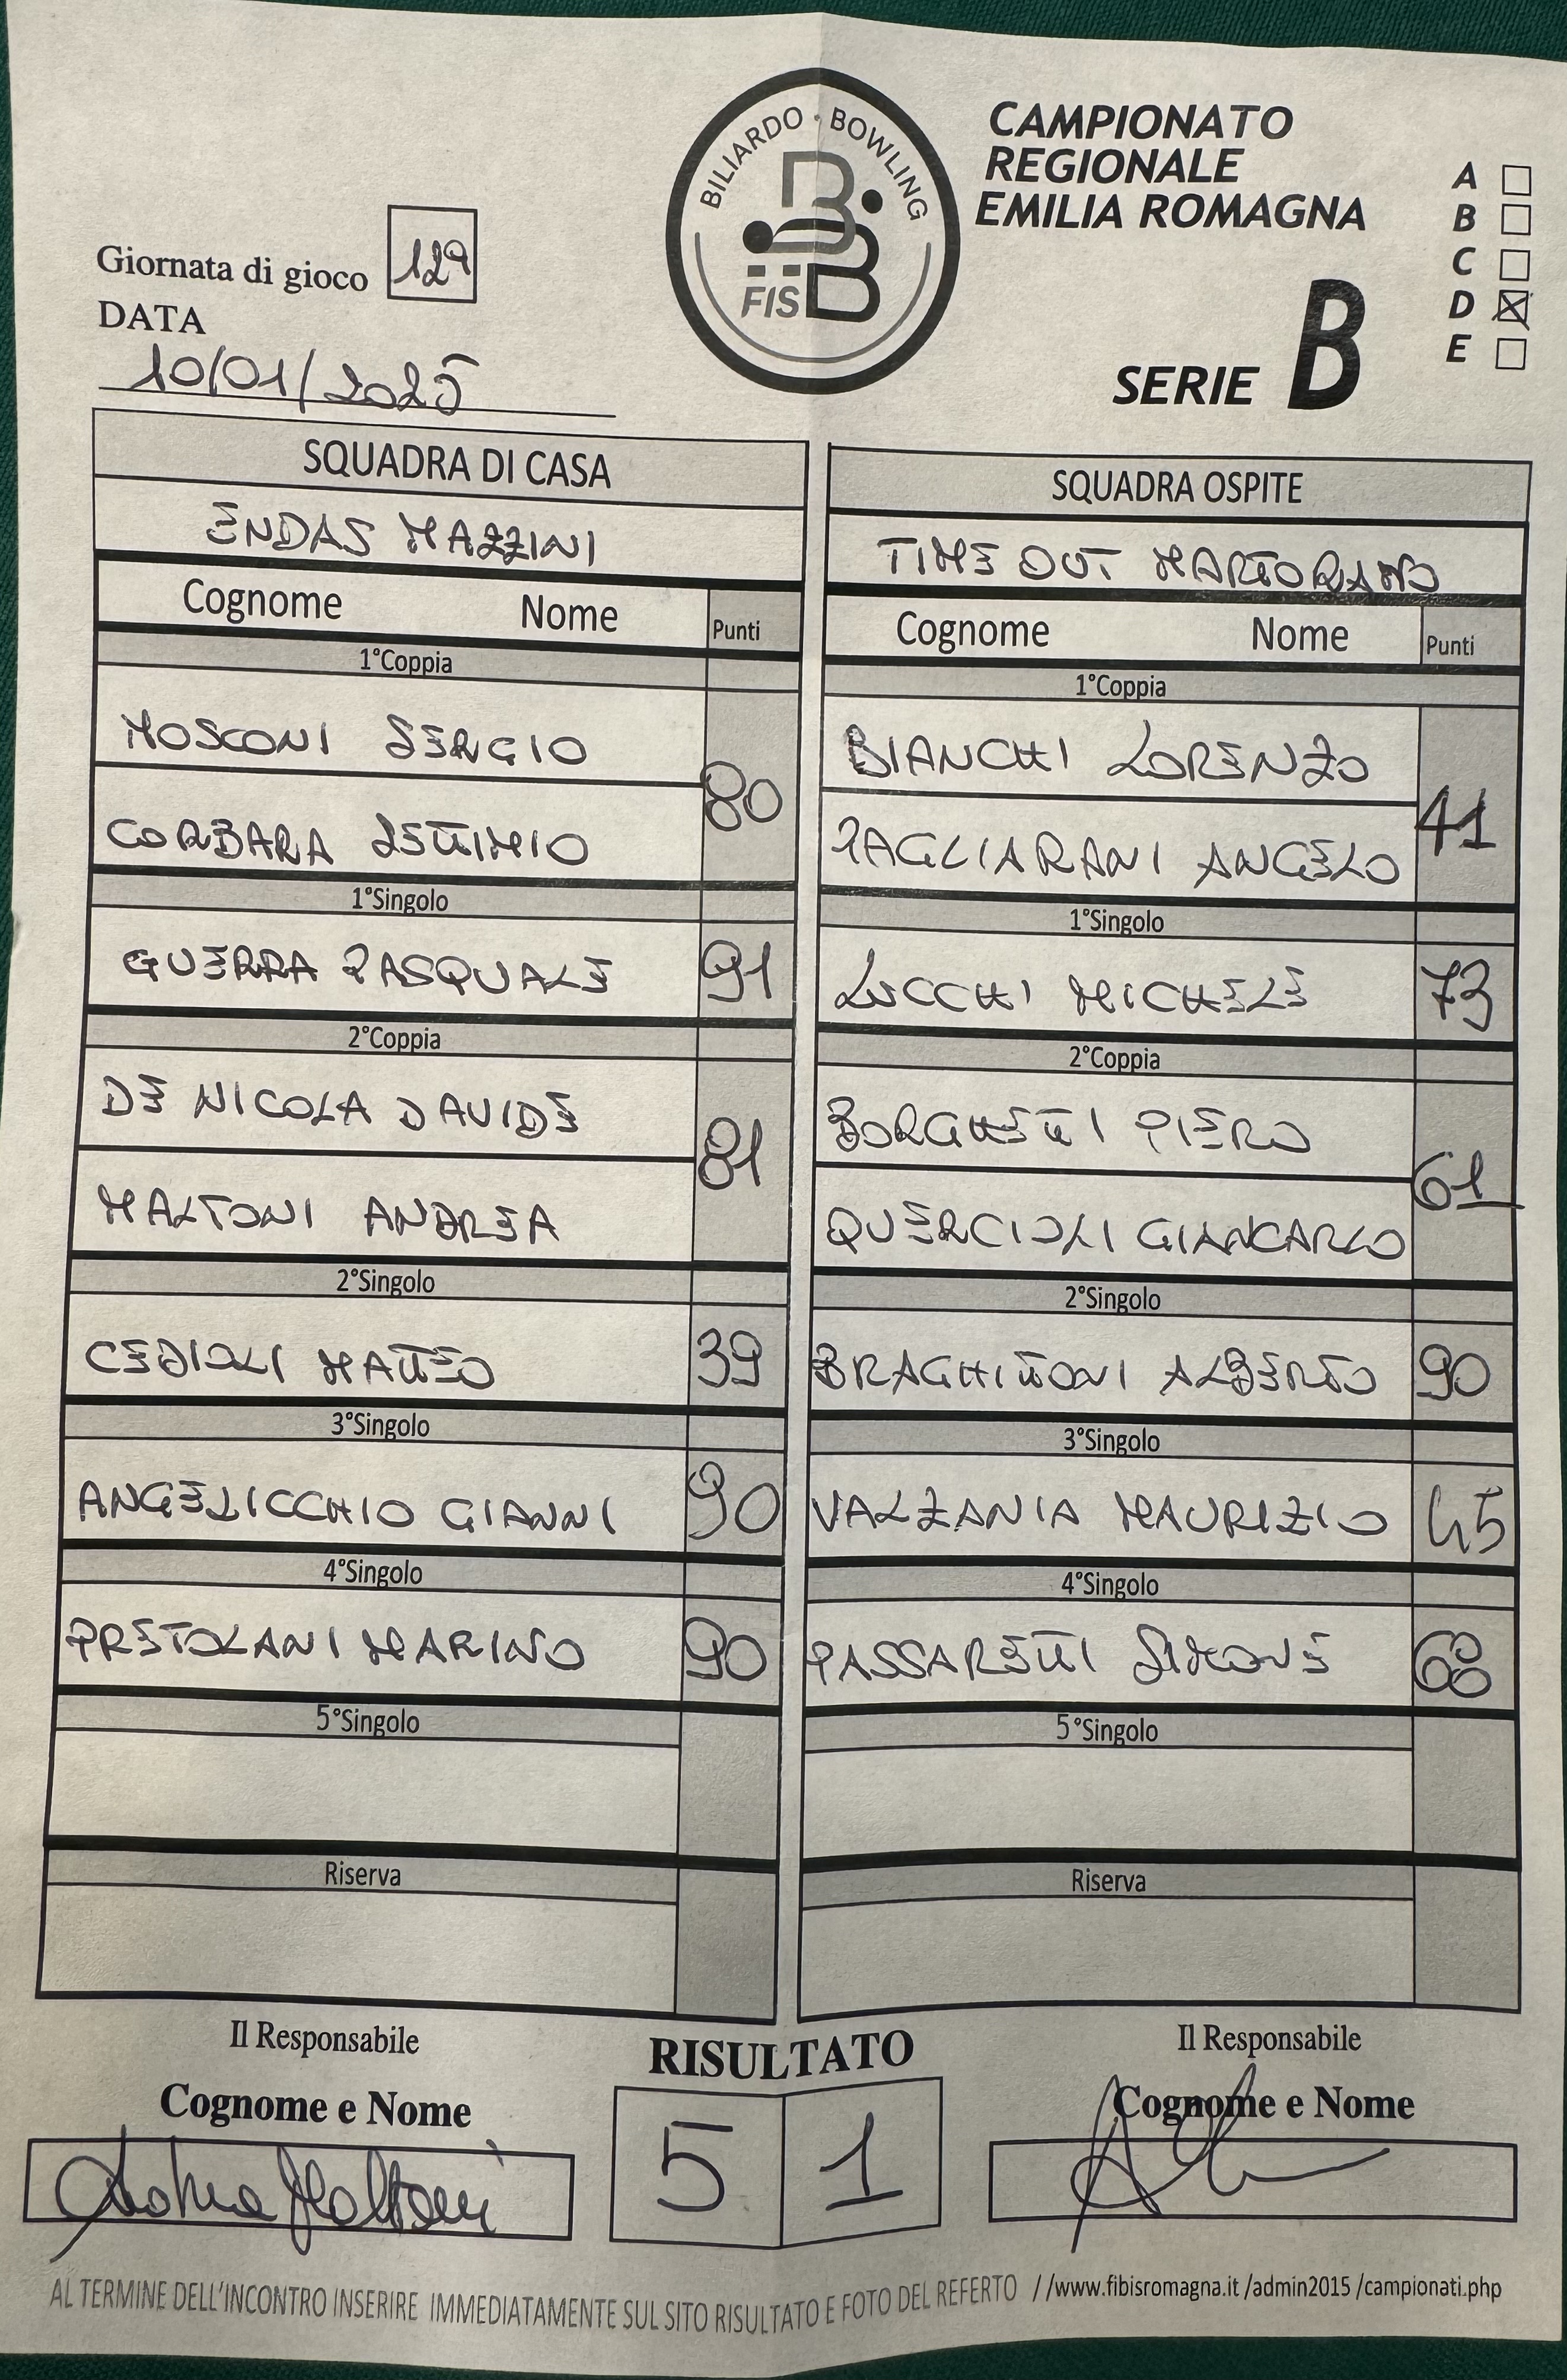 BILIARDO · BOWLING
FISBB
CAMPIONATO
REGIONALE
EMILIA ROMAGNA
SERIE B
A
B
C
D
E
Giornata di gioco 12ª
DATA
10/01/2025
SQUADRA DI CASA
ENDAS MAZZINI
Cognome Nome Punti
1°Coppia
MOSCONI SERGIO
80
CORBARA SETTIMIO
1°Singolo
GUERRA PASQUALE 91
2°Coppia
DE NICOLA DAVIDE
81
MALTONI ANDREA
2°Singolo
CEDIOLI MATTEO 39
3°Singolo
ANGELICCHIO GIANNI 90
4°Singolo
PRETOLANI MARINO 90
5°Singolo
Riserva
SQUADRA OSPITE
TIME OUT MARTORANO
Cognome Nome Punti
1°Coppia
BIANCHI LORENZO
41
PAGLIARANI ANGELO
1°Singolo
LUCCHI MICHELE 73
2°Coppia
BORGHETTI PIERO
61
QUERCIOLI GIANCARLO
2°Singolo
BRAGHITTONI ALBERTO 90
3°Singolo
VALZANIA MAURIZIO 45
4°Singolo
PASSARETTI SIMONE 68
5°Singolo
Riserva
Il Responsabile
Cognome e Nome
Andrea Maltoni
RISULTATO
5 1
Il Responsabile
Cognome e Nome
AL TERMINE DELL'INCONTRO INSERIRE IMMEDIATAMENTE SUL SITO RISULTATO E FOTO DEL REFERTO //www.fibisromagna.it /admin2015 /campionati.php